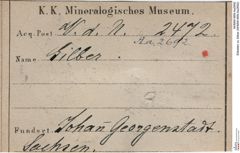 K.K. Mineralogisches Museum.
Acq. Post. W. d. N. 2472.
Aa, 2692
Name Silber.
Fundort. Johañ Georgenstadt.
Sachsen.